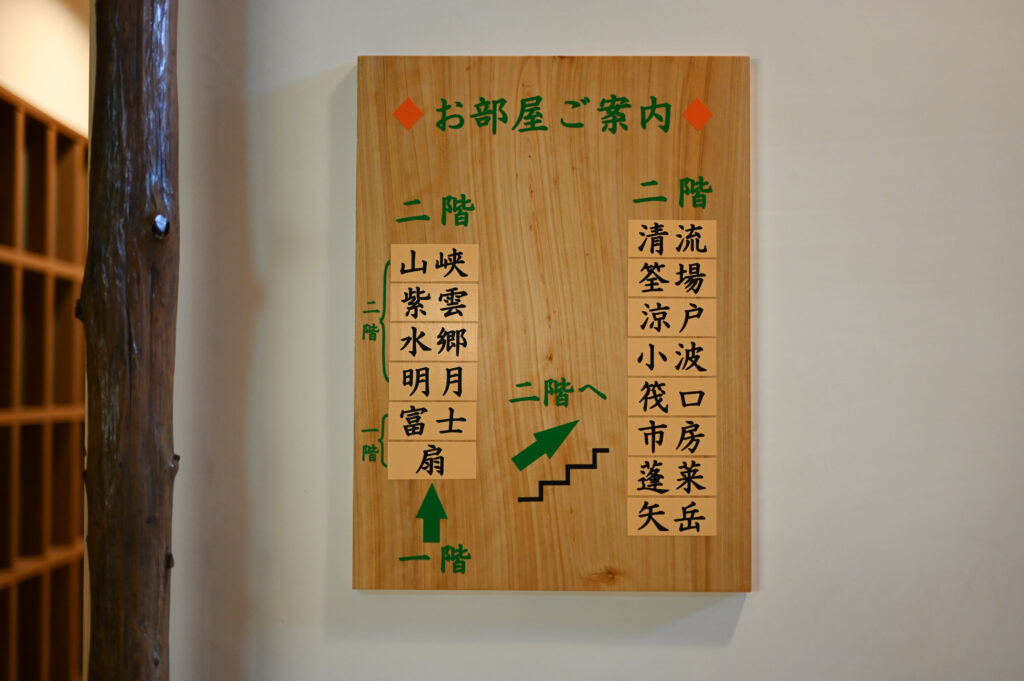 お部屋ご案内
二階
山峡
紫雲
水郷
明月
富士
扇
二階
一階
一階
二階へ
二階
清流
筌場
涼戸
小波
筏口
市房
蓬莱
矢岳